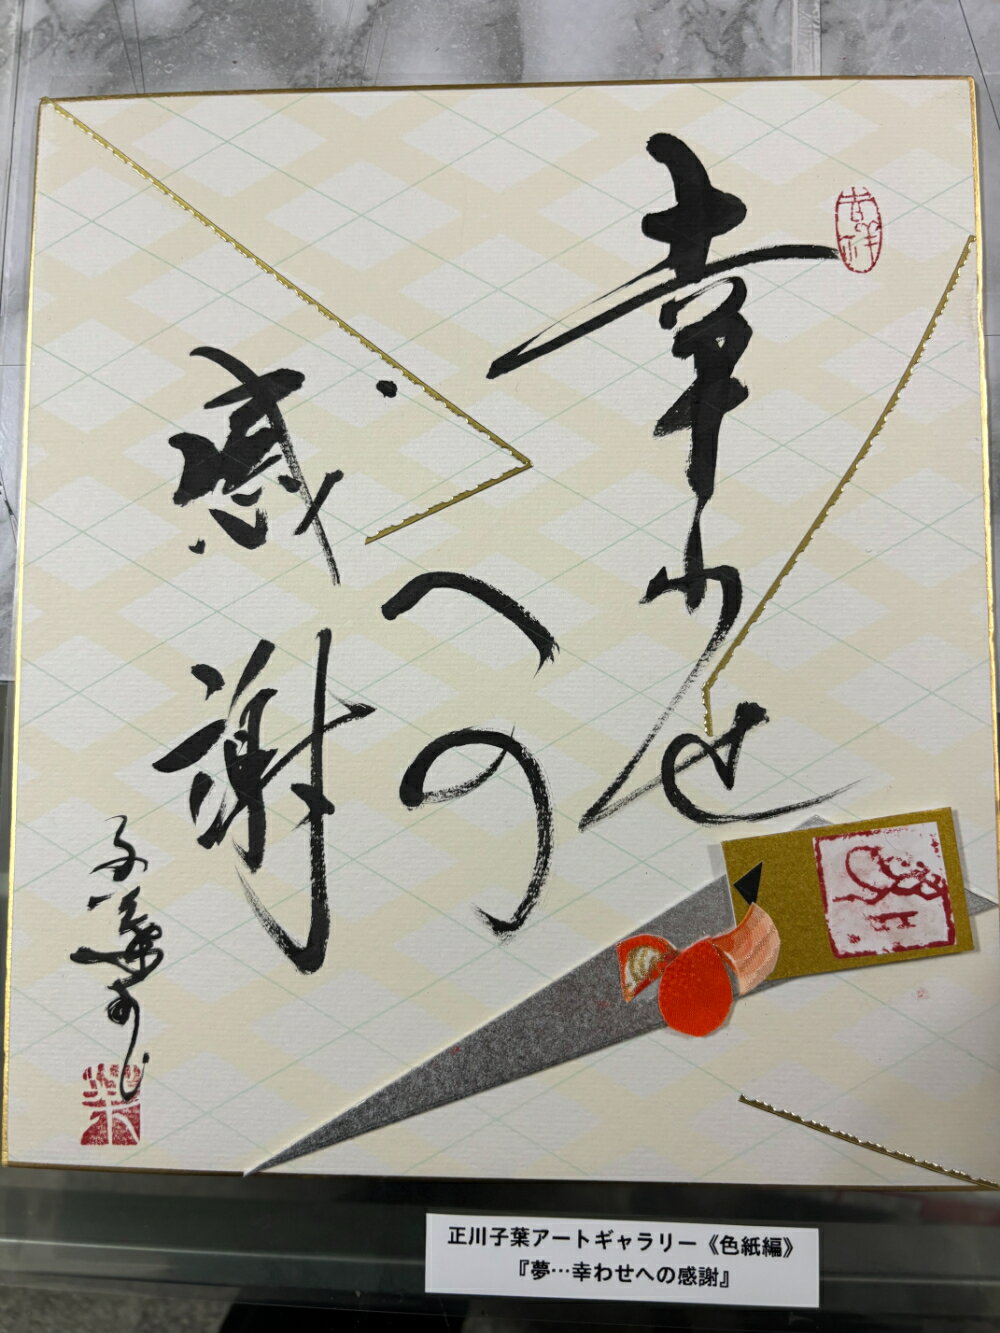 幸わせ
への
感謝
子葉
吉祥
正川子葉アートギャラリー《色紙編》
『夢…幸わせへの感謝』